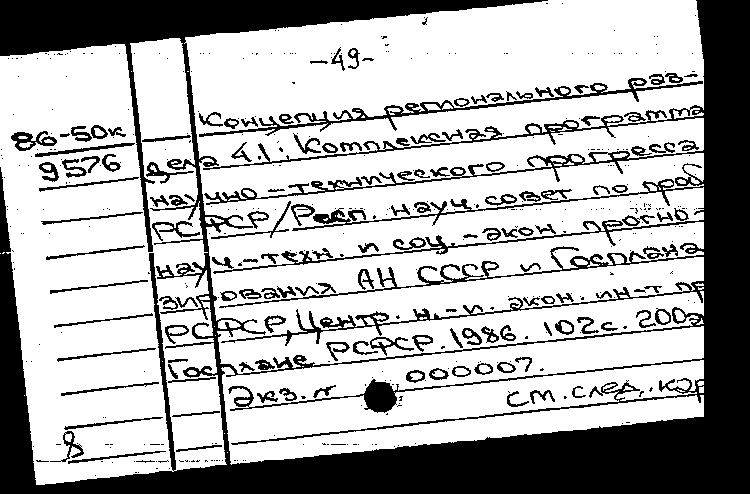 -49-
86-50к
9576
Концепция регионального раз-
дела 4.1: Комплексная программа
научно-технического прогресса
РСФСР/Респ. науч. совет по проб
науч.-техн. и соц.-экон. прогно-
зирования АН СССР и Госплана
РСФСР, Центр. н.-и. экон. ин-т пр
Госплане РСФСР. 1986. 102с. 200э
Экз. № 000007.
см. след. кар
8